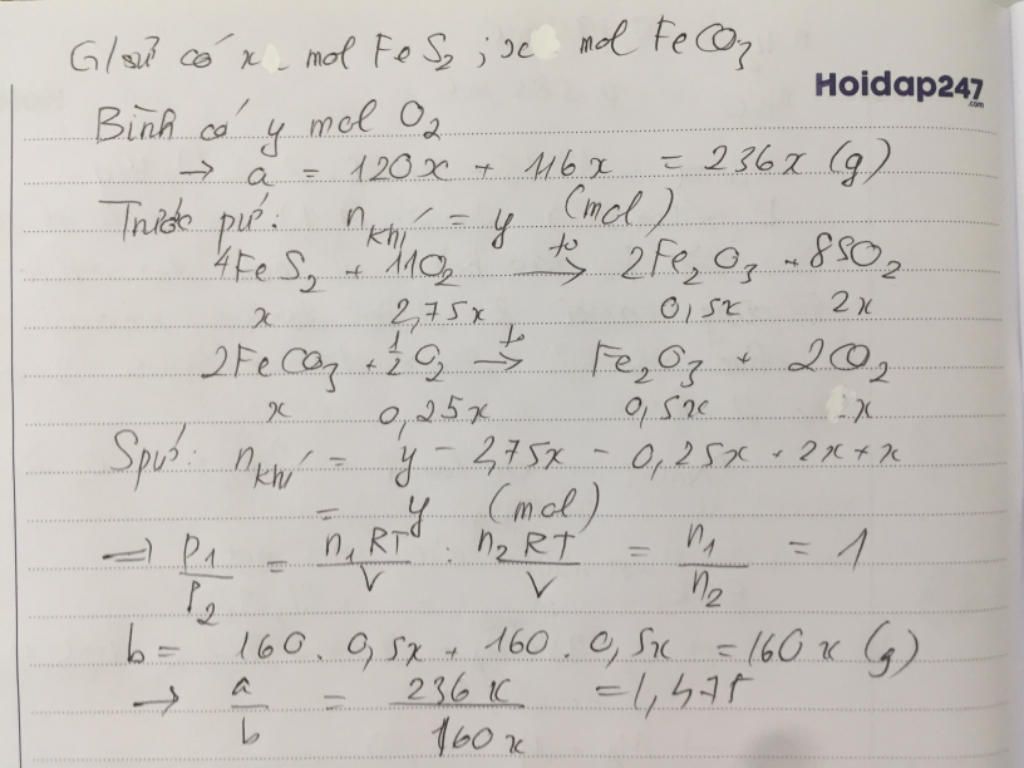 G/sử có x mol FeS2 ; x mol FeCO3
Hoidap247
.com
Bình có y mol O2
→ a = 120x + 116x = 236x (g)
Trước pứ: nkhí = y (mol)
4FeS2 + 11O2 →(to) 2Fe2O3 + 8SO2
x 2,75x 0,5x 2x
2FeCO3 + 1/2O2 →(to) Fe2O3 + 2CO2
x 0,25x 0,5x x
Spứ: nkhí = y - 2,75x - 0,25x + 2x + x
= y (mol)
=> P1/P2 = n1RT/V : n2RT/V = n1/n2 = 1
b = 160. 0,5x + 160. 0,5x = 160x (g)
→ a/b = 236x/160x = 1,475